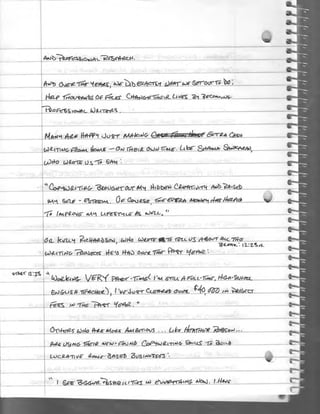 AND PROFESSIONAL RESEARCH.
AND OVER THE YEARS, WE DID EXACTLY WHAT WE SET OUT TO DO:
HELP THOUSANDS OF FOLKS CHANGE THEIR LIVES BY BECOMING
PROFESSIONAL WRITERS.
MANY ARE HAPPY JUST MAKING EXTRA CASH
WRITING FROM HOME - ON THEIR OWN TIME. LIKE
WHO WROTE US TO SAY:
"COPYWRITING BROUGHT OUT MY HIDDEN CREATIVITY AND RAISED
MY SELF-ESTEEM. OF COURSE, THE EXTRA MONEY HAS HELPED
TO IMPROVE MY LIFESTYLE AS WELL."
OR KELLY RICHARDSON, WHO WROTE TO TELL US ABOUT ALL THE
12:25
WRITING PROJECTS HE'D HAD OVER THE PAST YEAR:
START 12:35
"WORKING VERY PART-TIME (I'M STILL A FULL-TIME, HIGH-SCHOOL
ENGLISH TEACHER), I'VE JUST CLEARED OVER $40,000 IN PROJECT
FEES IN THE PAST YEAR."
OTHERS WHO ARE MORE AMBITIOUS ... LIKE HEATHER ROBSON ...
ARE USING THEIR NEW-FOUND COPYWRITING SKILLS TO BUILD
LUCRATIVE HOME-BASED BUSINESSES:
"I SEE BIGGER POSSIBILITIES IN EVERYTHING NOW. I HAVE